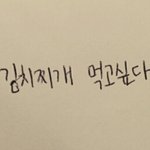 김치찌개 먹고싶다